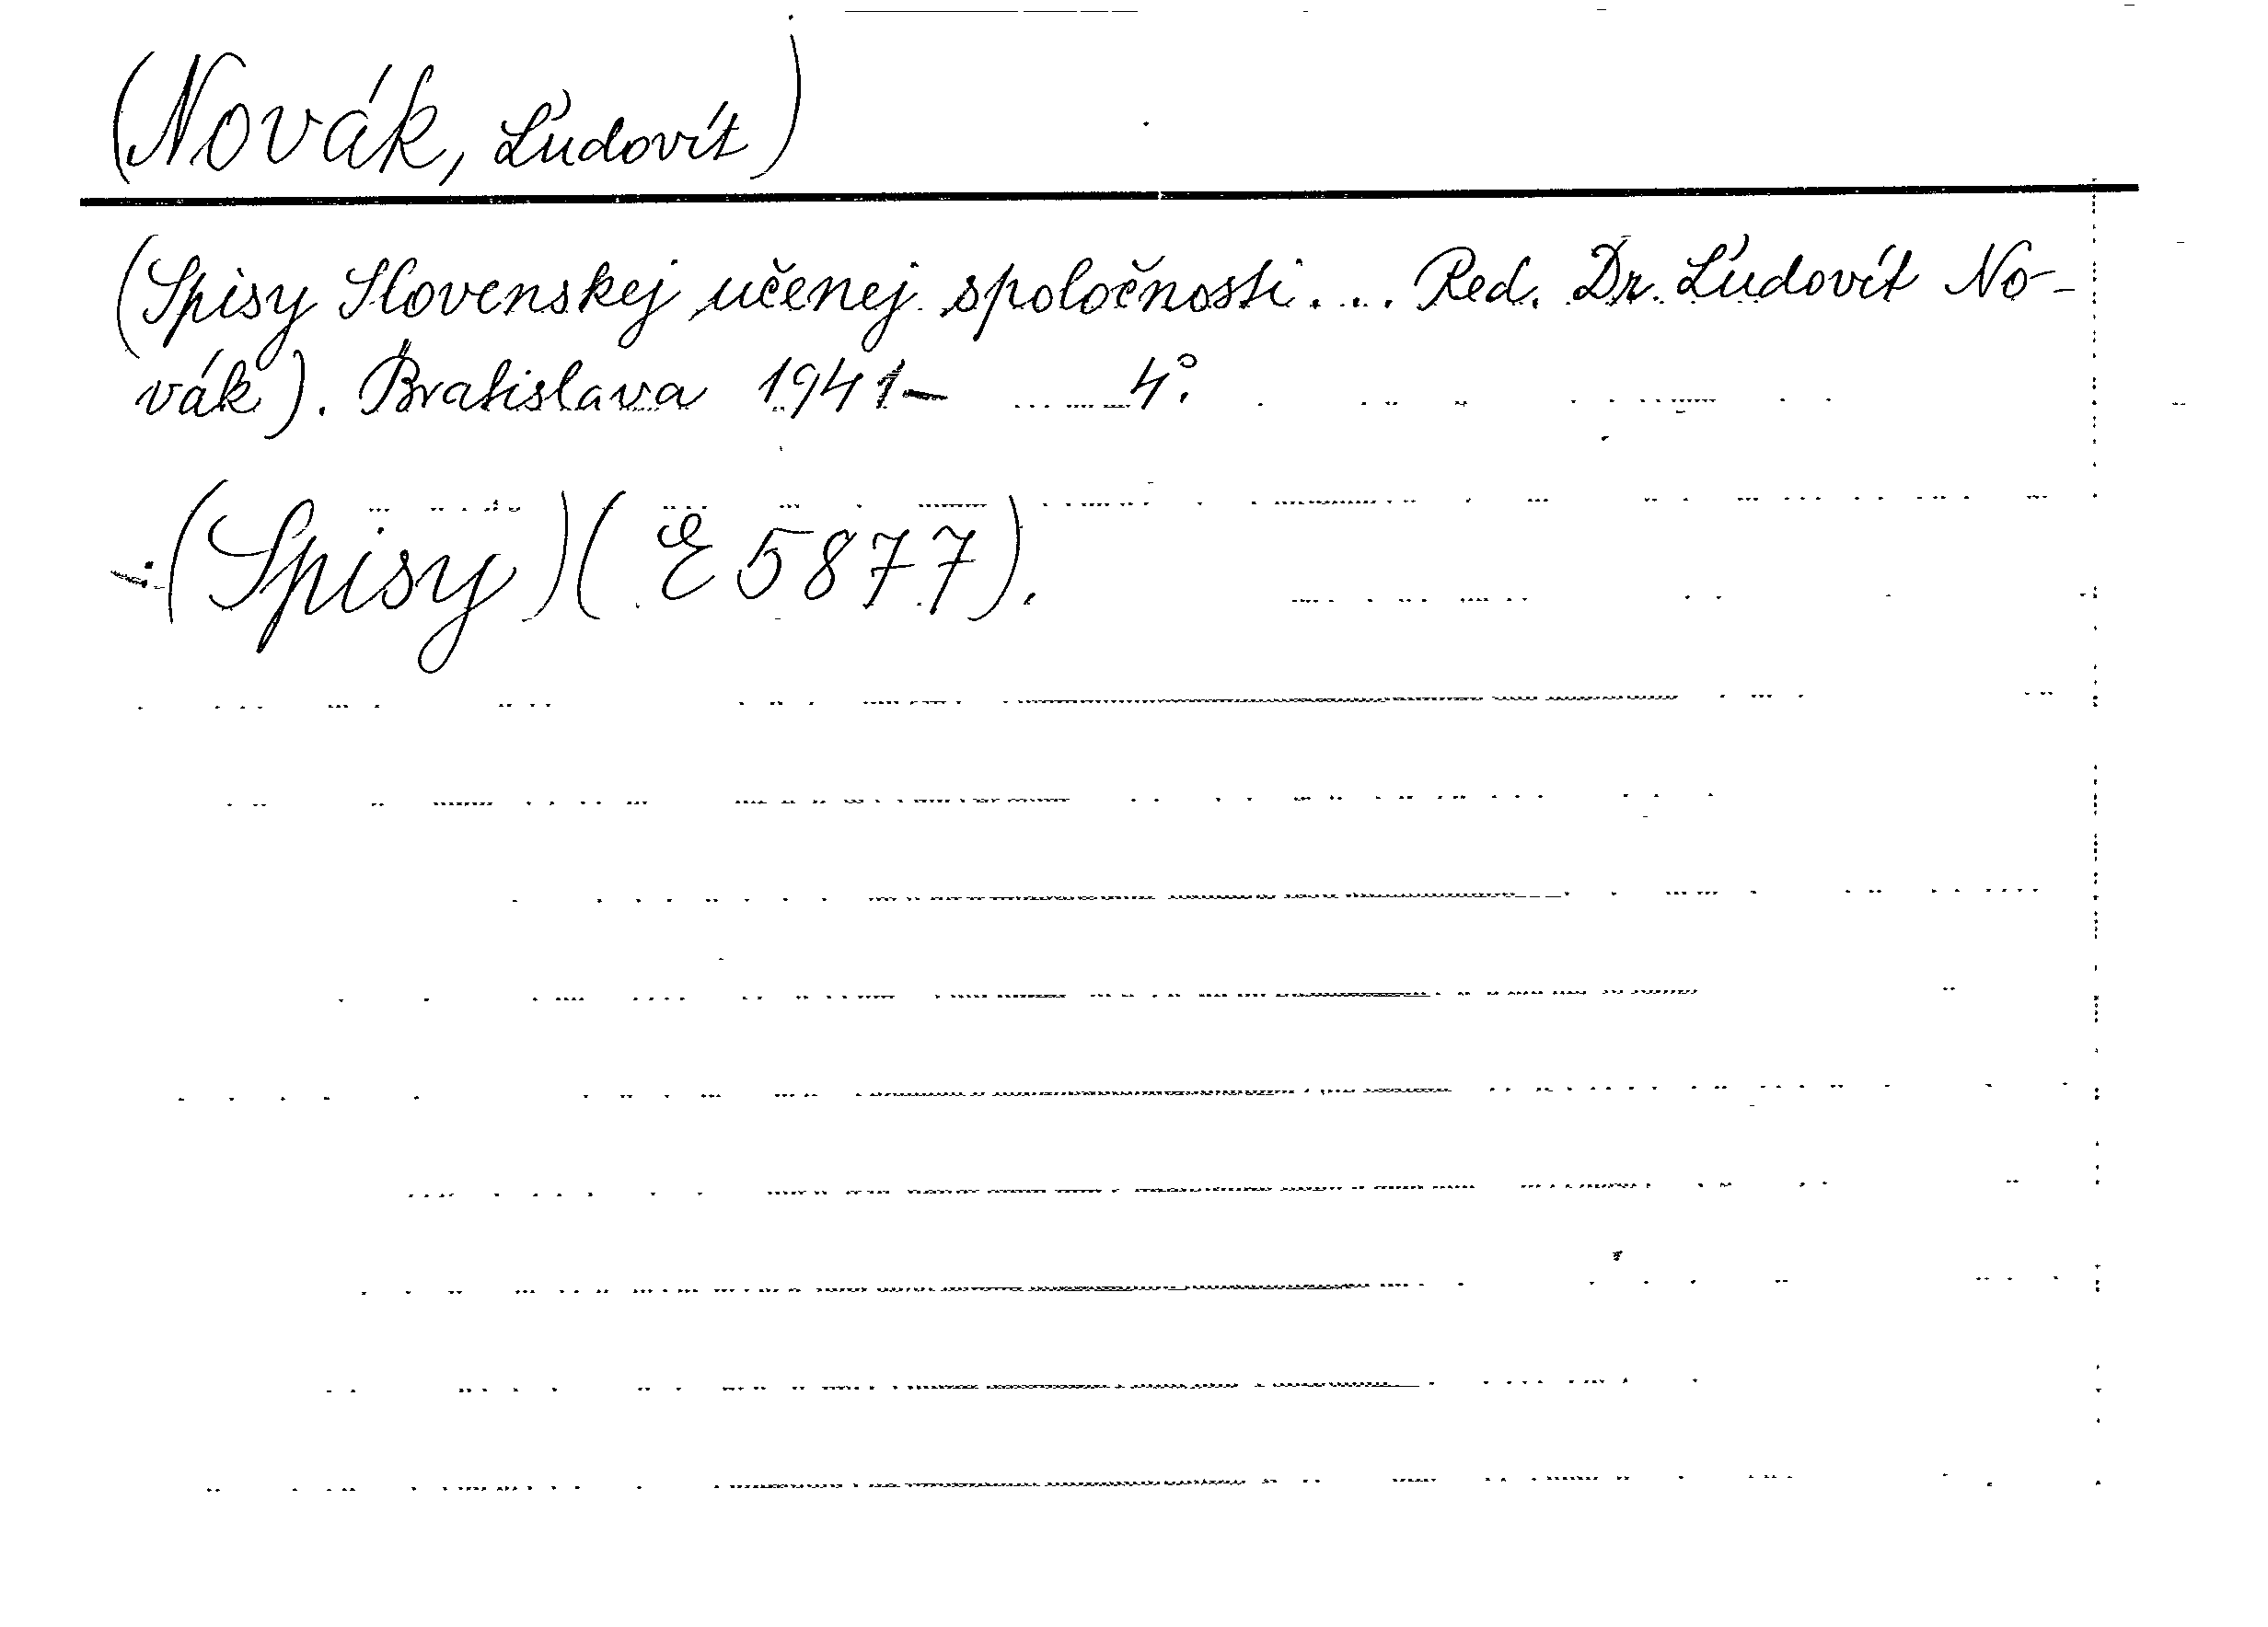 (Novák, Ľudovít)
(Spisy Slovenskej učenej spoločnosti... Red. Dr. Ľudovít No-
vák). Bratislava 1941- 4°.
(Spisy)(E 5877).